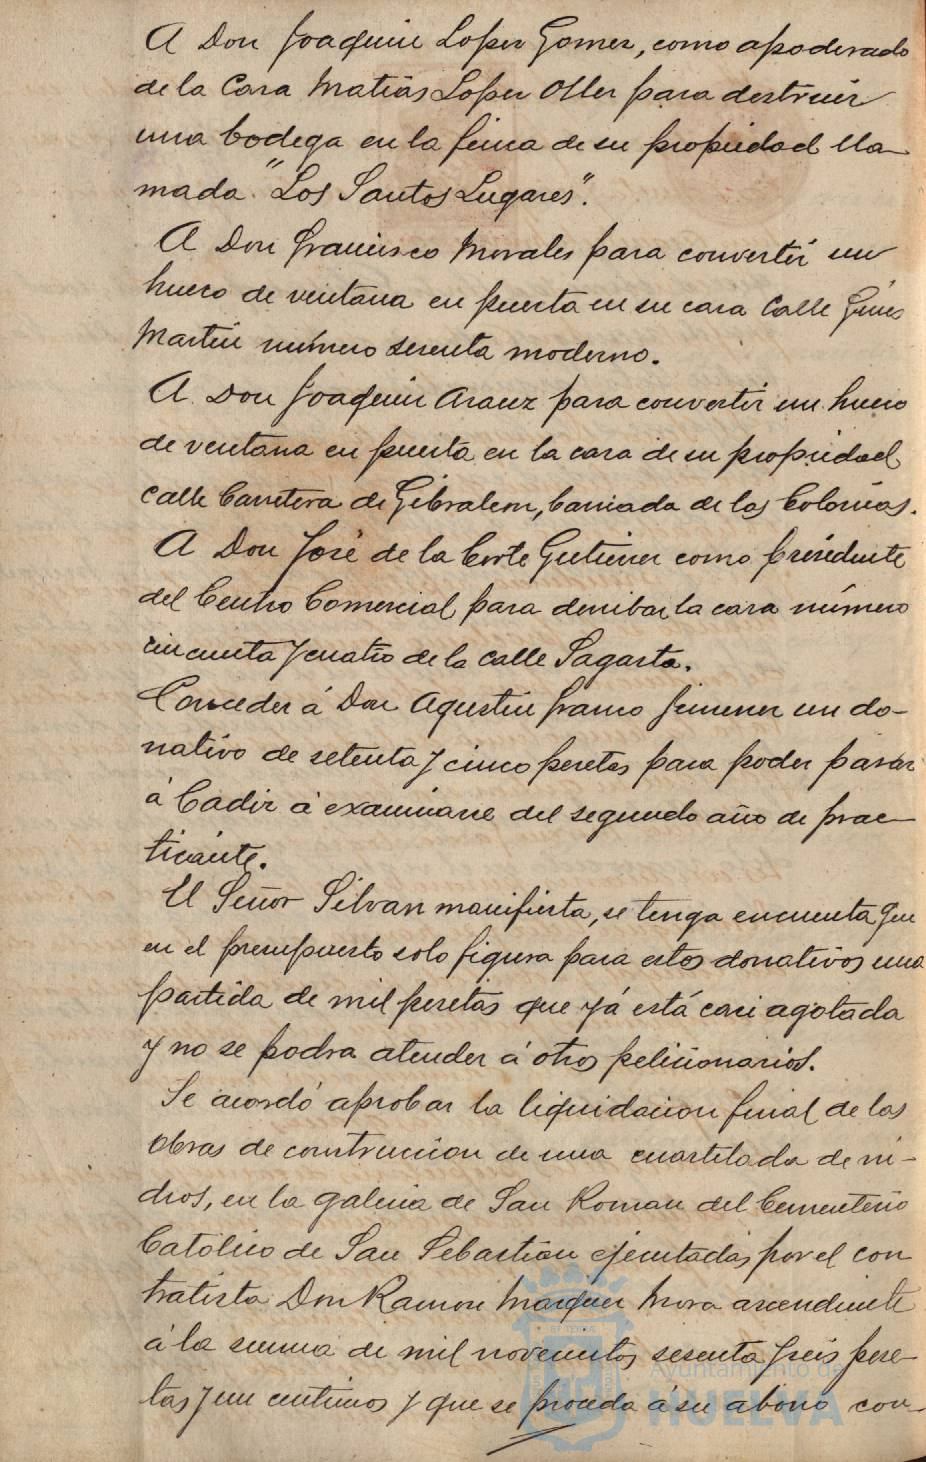 A Don Joaquin Lopez Gomez, como apoderado
de la Casa Matias Lopez Oller para destruir
una bodega en la finca de su propiedad lla-
mada "Los Santos Lugares".
A Don Francisco Morales para convertir un
hueco de ventana en puerta en su casa Calle Ginés
Martin número sesenta moderno.
A Don Joaquin Arauz para convertir un hueco
de ventana en puerta en la casa de su propiedad
calle Carretera de Gibraleon, barriada de las Colonias.
A Don José de la Corte Gutierrez como presidente
del Centro Comercial para derribar la casa número
cincuenta y cuatro de la calle Sagasta.
Conceder á Don Agustin Franco Jimenez un do-
nativo de setenta y cinco pesetas para poder pasar
á Cadiz á examinarse del segundo año de prac-
ticante.
El Señor Silvan manifiesta, se tenga encuenta que
en el presupuesto solo figura para estos donativos una
partida de mil pesetas que yá está casi agotada
y no se podra atender á otros peticionarios.
Se acordó aprobar la liquidacion final de las
obras de construccion de una cuartelada de ni-
chos, en la galeria de San Roman del Cementerio
Católico de San Sebastian ejecutadas por el con
tratista Don Ramon Marquez Mora ascendiente
á la suma de mil novecientos sesenta y seis pese-
tas y un centimos y que se proceda á su abono con-
Ayuntamiento de
HUELVA